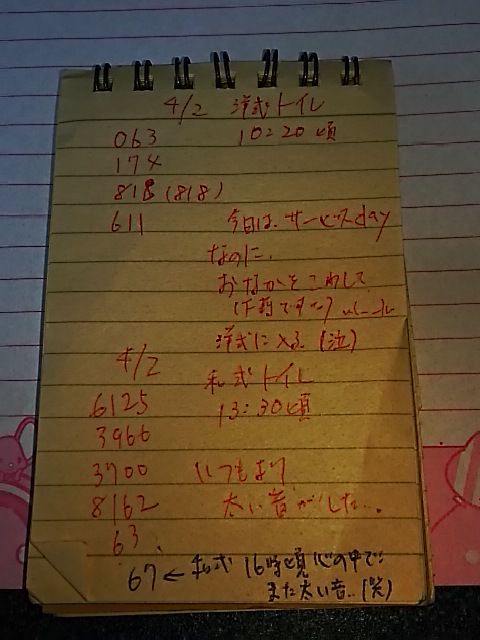 4/2 洋式トイレ
063 10:20頃
174
818 (818)
611 今日は、サービスday
なのに、
おなかをこわして
(下痢ですか〜)
洋式に入る (泣)
4/2 和式トイレ
6125 13:30頃
3966
3700 いつもより
8162 太い音がした...
63.
67 ← 和式 16時頃 心の中で
また太い音..(笑)